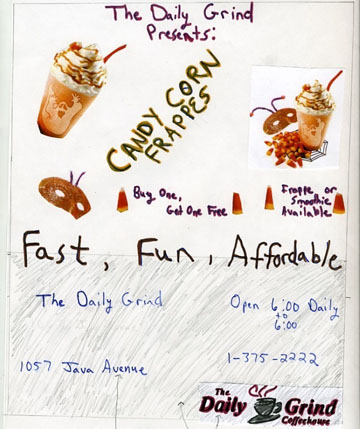 The Daily Grind
Presents:
CANDY CORN
FRAPPES
Buy One,
Get One Free
Frappe or
Smoothie
Available
Fast, Fun, Affordable
The Daily Grind
Open 6:00 Daily
to
6:00
1057 Java Avenue
1-375-2222
The
Daily Grind
Coffeehouse